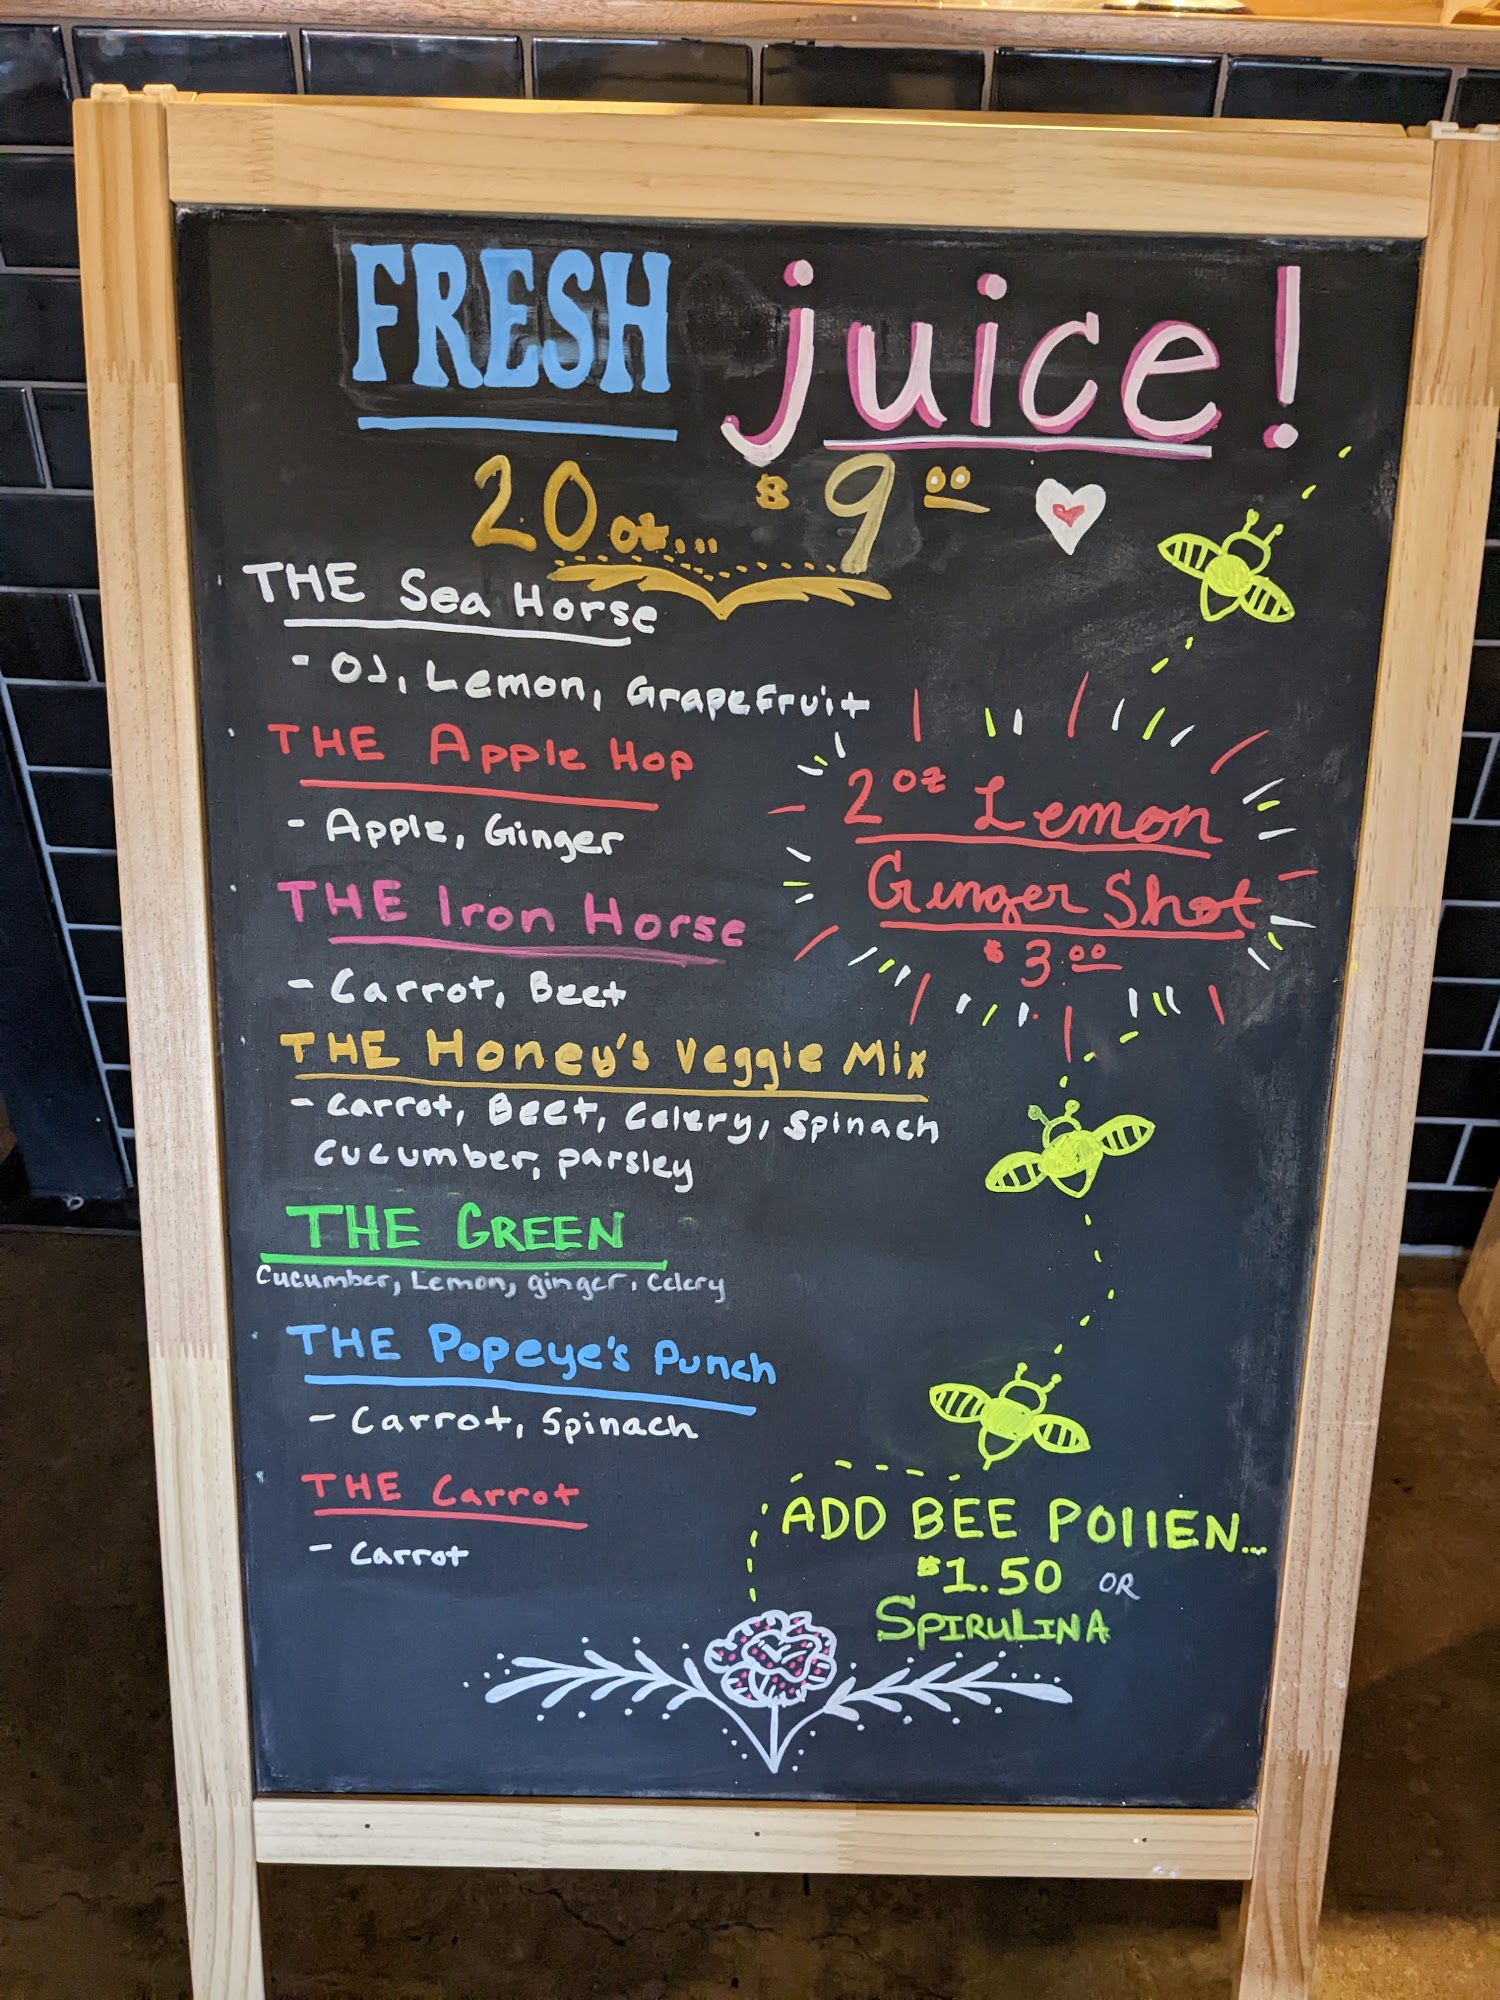 FRESH juice!
20 oz... $9.00
THE Sea Horse
- OJ, Lemon, Grapefruit
THE Apple Hop
- Apple, Ginger
THE Iron Horse
- Carrot, Beet
THE Honey's Veggie Mix
- Carrot, Beet, Celery, Spinach
cucumber, parsley
THE GREEN
Cucumber, Lemon, ginger, Celery
THE Popeye's Punch
- Carrot, Spinach
THE Carrot
- Carrot
2 oz Lemon
Ginger Shot
$3.00
ADD BEE POllEN...
$1.50 OR
SPIRULINA